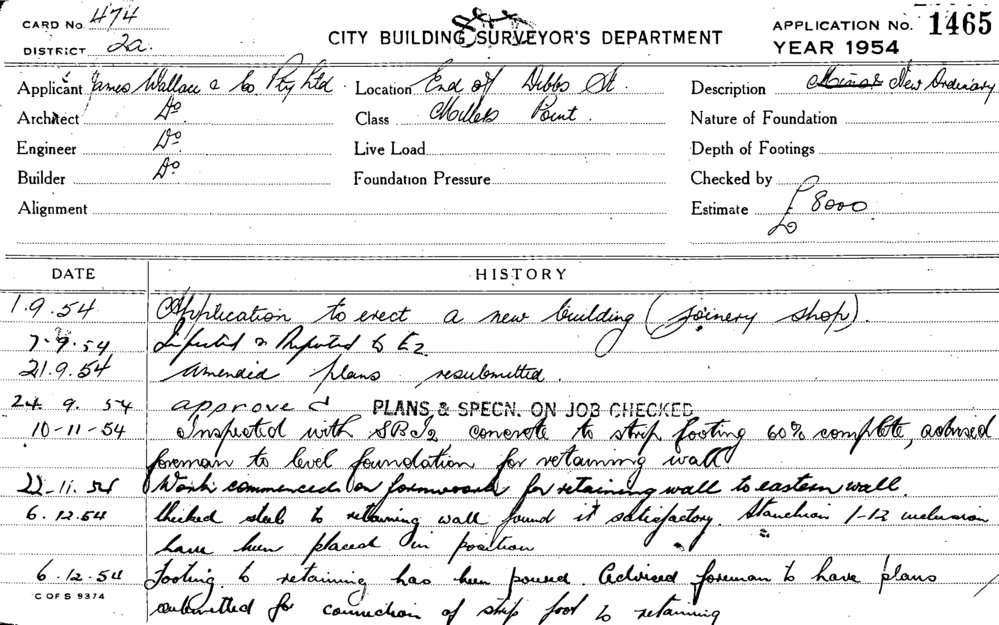 CARD No. 474
DISTRICT 2a
CITY BUILDING SURVEYOR'S DEPARTMENT
APPLICATION No. 1465
YEAR 1954
Applicant James Wallace & Co Pty Ltd
Location End of Dibbs St.
Description Minor New Ordinary
Architect Do
Class Millers Point.
Nature of Foundation
Engineer Do
Live Load
Depth of Footings
Builder Do
Foundation Pressure
Checked by
Alignment
Estimate £8000
DATE HISTORY
1.9.54 Application to erect a new building (joinery shop).
7.9.54 Inspected & Reported to E2
21.9.54 Amended plans resubmitted.
24.9.54 approved PLANS & SPECN. ON JOB CHECKED
10-11-54 Inspected with SBI2, concrete to strip footing 60% complete, advised
foreman to level foundation for retaining wall
22-11.54 Work commenced on formwork for retaining wall to eastern wall.
6.12.54 Checked steel to retaining wall found it satisfactory. Stanchion 1-12 inclusion
have been placed in position
6.12.54 Footing to retaining has been poured. Advised foreman to have plans
C OF S 9374
submitted for connection of strip foot to retaining